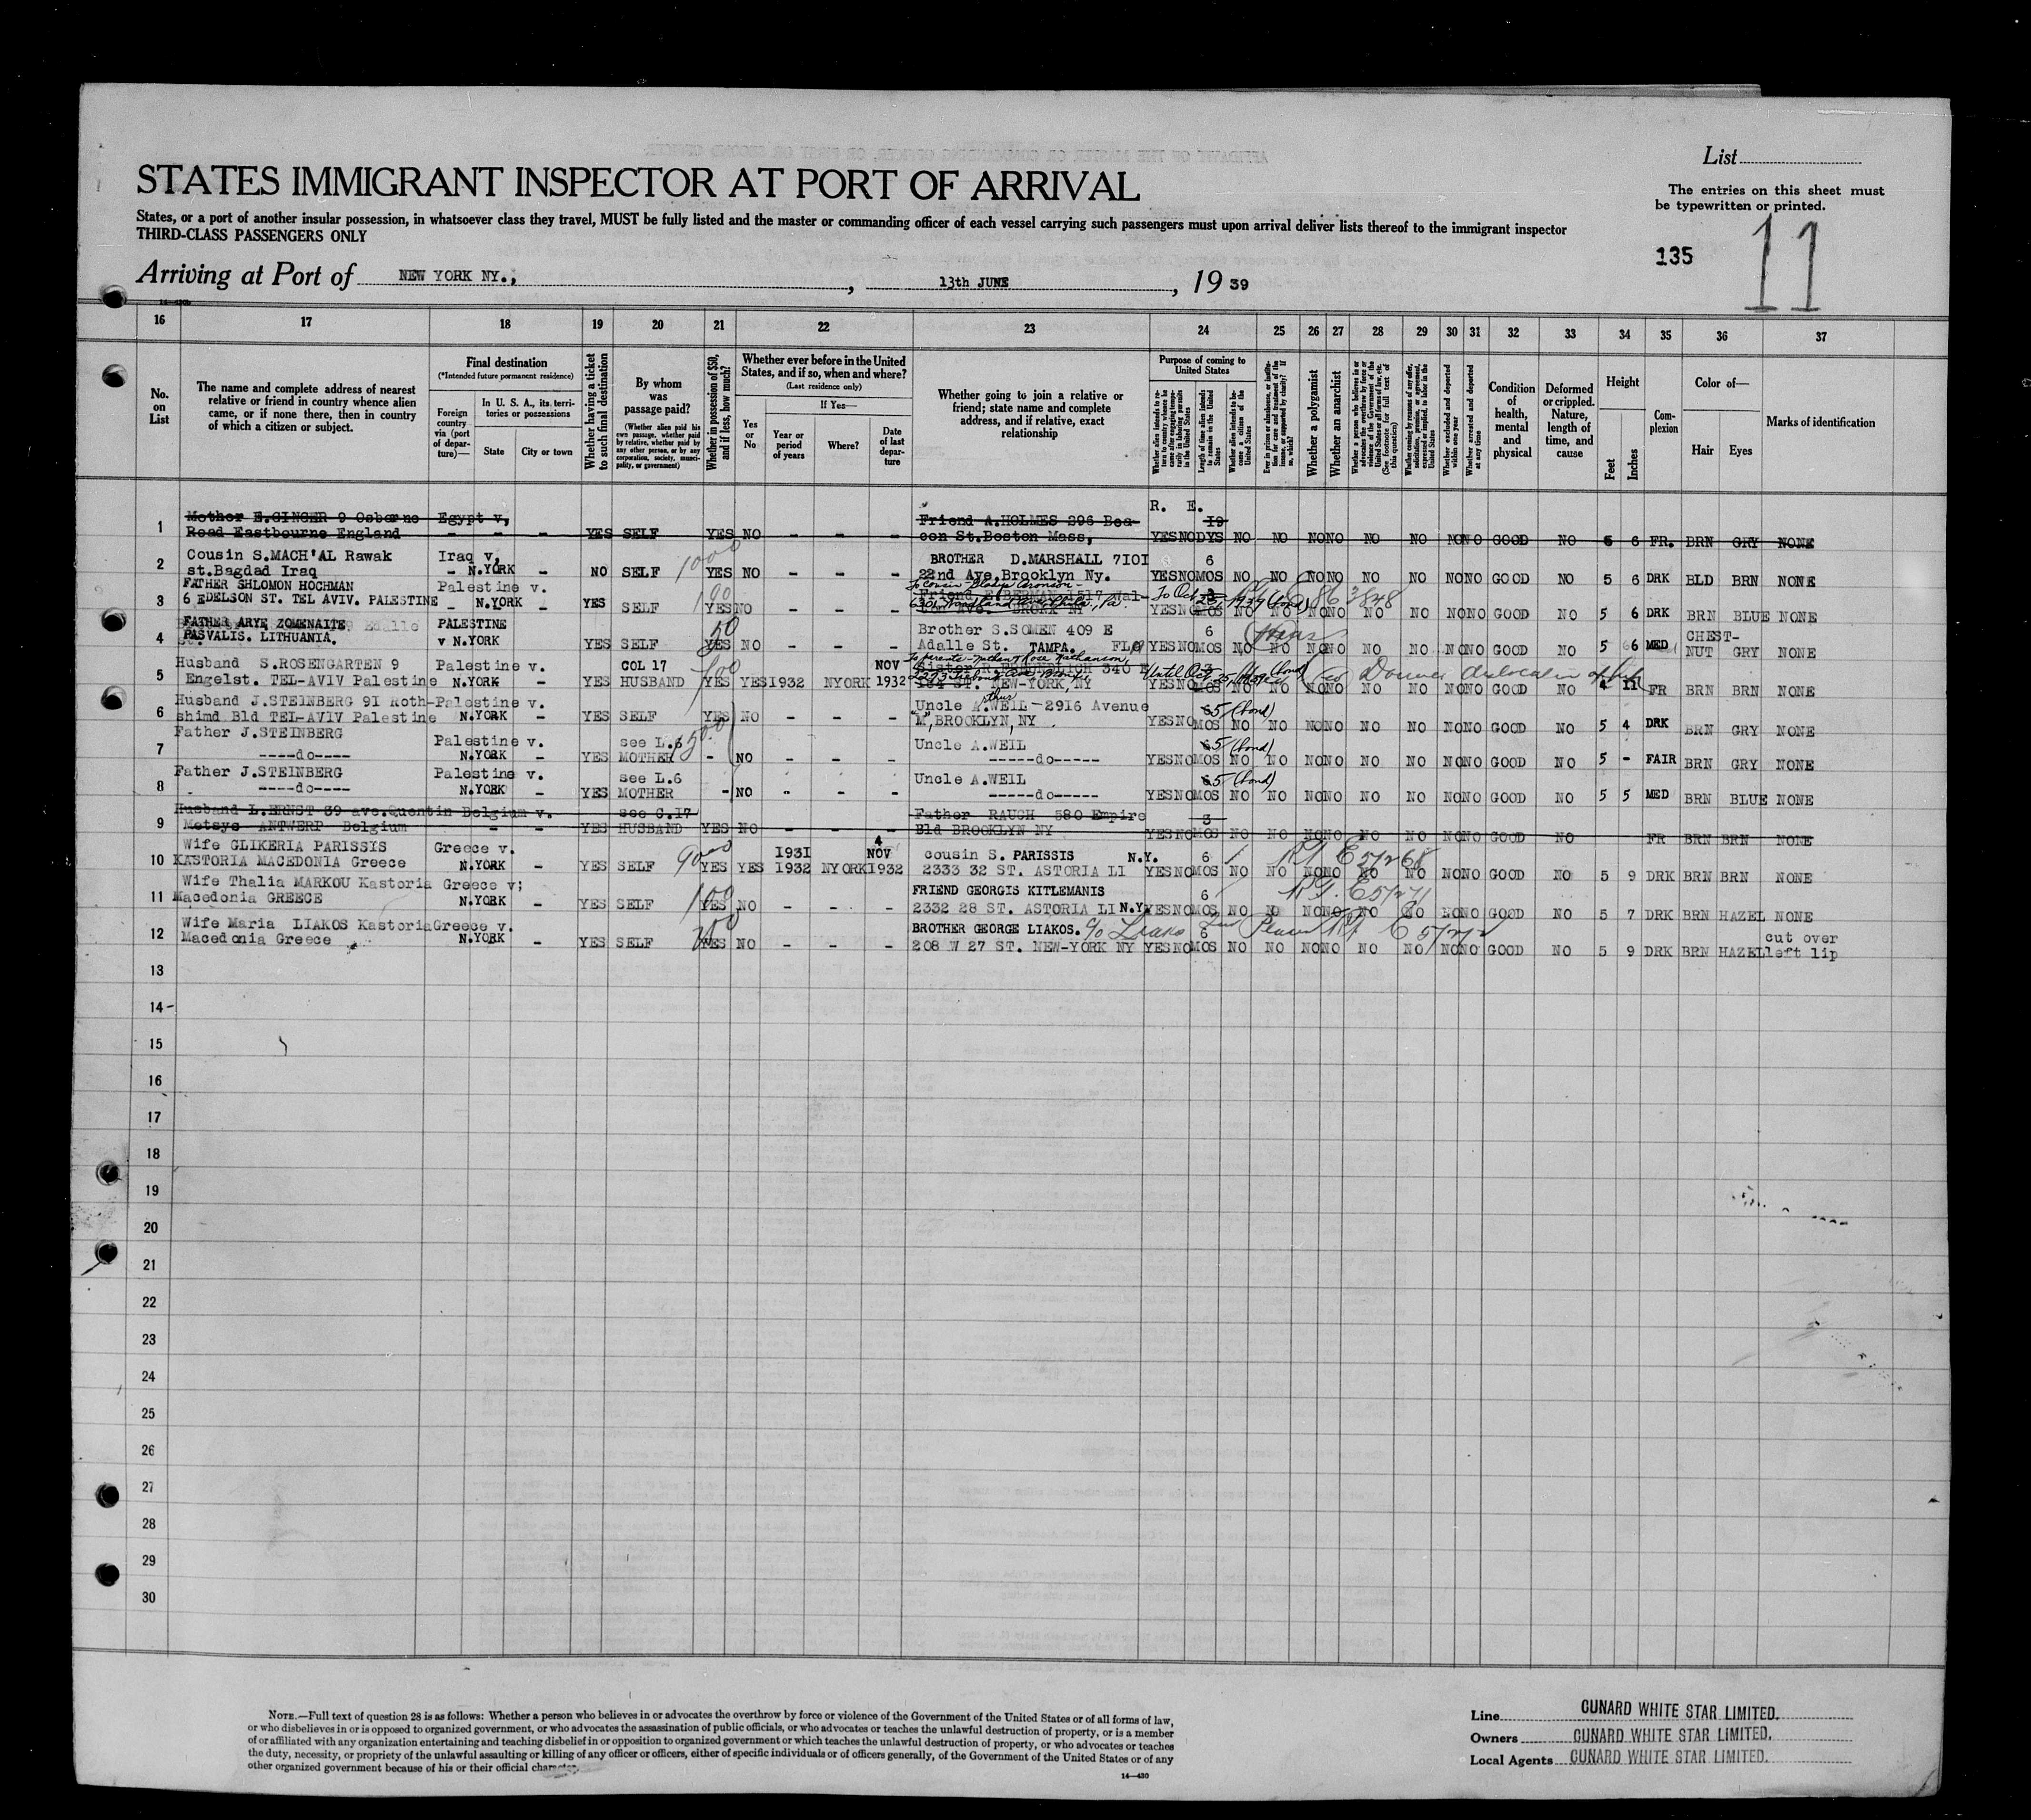 List
STATES IMMIGRANT INSPECTOR AT PORT OF ARRIVAL
The entries on this sheet must
be typewritten or printed.
States, or a port of another insular possession, in whatsoever class they travel, MUST be fully listed and the master or commanding officer of each vessel carrying such passengers must upon arrival deliver lists thereof to the immigrant inspector
THIRD-CLASS PASSENGERS ONLY
135
11
Arriving at Port of NEW YORK NY., , 13th JUNE , 19 39
16 17 18 19 20 21 22 23 24 25 26 27 28 29 30 31 32 33 34 35 36 37
No. on List
The name and complete address of nearest relative or friend in country whence alien came, or if none there, then in country of which a citizen or subject.
Final destination
(*Intended future permanent residence)
Foreign country via (port of departure)—
In U. S. A., its territories or possessions
State
City or town
Whether having a ticket to such final destination
By whom was passage paid?
(Whether alien paid his own passage, whether paid by relative, whether paid by any other person, or by any corporation, society, municipality, or government)
Whether in possession of $50, and if less, how much?
Whether ever before in the United States, and if so, when and where?
(Last residence only)
Yes or No
If Yes—
Year or period of years
Where?
Date of last departure
Whether going to join a relative or friend; state name and complete address, and if relative, exact relationship
Purpose of coming to United States
Length of time alien intends to remain in the United States
Whether alien intends to become a citizen of the United States
Whether a polygamist
Whether an anarchist
Whether excluded and deported within one year
Whether arrested and deported at any time
Condition of health, mental and physical
Deformed or crippled. Nature, length of time, and cause
Height
Feet
Inches
Complexion
Color of—
Hair
Eyes
Marks of identification
R. E.
1 Mother E.GINGER 9 Osborne Egypt v, Friend A.HOLMES 296 Bea- 19
Road Eastbourne England - - - YES SELF YES NO - - - con St.Boston Mass, YES NO DYS NO NO NO NO NO NO NO NO GOOD NO 5 6 FR. BRN GRY NONE
2 Cousin S.MACH'AL Rawak Iraq v, 1000 BROTHER D.MARSHALL 7101 6
st.Bagdad Iraq - N.YORK - NO SELF YES NO - - - 22nd Ave.Brooklyn Ny. YES NO MOS NO NO NO NO NO NO NO NO GOOD NO 5 6 DRK BLD BRN NONE
3 FATHER SHLOMON HOCHMAN Palestine v. 100 To cousin - Gladys Aronson -
6 EDELSON ST. TEL AVIV. PALESTINE - N.YORK - YES SELF YES NO - - - YES NO MOS NO NO NO NO NO NO NO NO GOOD NO 5 6 DRK BRN BLUE NONE
4 FATHER ARYE ZOMENAITE PALESTINE 50 Brother S.SOMEN 409 E 6 CHEST-
PASVALIS. LITHUANIA. v N.YORK YES SELF YES NO - - - Adalle St. TAMPA. FLA YES NO MOS NO NO NO NO NO NO NO NO GOOD NO 5 6 MED NUT GRY NONE
5 Husband S.ROSENGARTEN 9 Palestine v. COL 17 100 NOV To parents - Nathan &
Engelst. TEL-AVIV Palestine N.YORK - YES HUSBAND YES YES 1932 NYORK 1932 164 ST. NEW-YORK, NY YES NO MOS NO NO NO NO NO NO NO NO GOOD NO 4 11 FR BRN BRN NONE
6 Husband J.STEINBERG 91 Roth- Palestine v. Uncle A.WEIL-2916 Avenue 5 (bond)
shimd Bld TEL-AVIV Palestine N.YORK - YES SELF YES NO - - - "M",BROOKLYN,NY . YES NO MOS NO NO NO NO NO NO NO NO GOOD NO 5 4 DRK BRN GRY NONE
7 Father J.STEINBERG Palestine v. see L.6 1500 Uncle A.WEIL 5 (bond)
----do---- N.YORK - YES MOTHER - NO - - - -----do----- YES NO MOS NO NO NO NO NO NO NO NO GOOD NO 5 - FAIR BRN GRY NONE
8 Father J.STEINBERG Palestine v. see L.6 Uncle A.WEIL 5 (bond)
----do---- N.YORK - YES MOTHER - NO - - - -----do----- YES NO MOS NO NO NO NO NO NO NO NO GOOD NO 5 5 MED BRN BLUE NONE
9 Husband L.ERNST 39 ave.Quentin Belgium v. see C.17 Father RAUCH 580 Empire 3
Metsys ANTWERP Belgium - - - YES HUSBAND YES NO - - - Bld BROOKLYN NY YES NO MOS NO NO NO NO NO NO NO NO GOOD NO FR BRN BRN NONE
10 Wife GLIKERIA PARISSIS Greece v. 9000 1931 4 NOV cousin S. PARISSIS N.Y. 6 E 57268
KASTORIA MACEDONIA Greece N.YORK - YES SELF YES YES 1932 NYORK 1932 2333 32 ST. ASTORIA LI YES NO MOS NO NO NO NO NO NO NO NO GOOD NO 5 9 DRK BRN BRN NONE
11 Wife Thalia MARKOU Kastoria Greece v; 100 FRIEND GEORGIS KITLEMANIS 6 E 57271
Macedonia GREECE N.YORK - YES SELF YES NO - - - 2332 28 ST. ASTORIA LI N.Y. YES NO MOS NO NO NO NO NO NO NO NO GOOD NO 5 7 DRK BRN HAZEL NONE
12 Wife Maria LIAKOS Kastoria Greece v. BROTHER GEORGE LIAKOS. 6 cut over
Macedonia Greece N.YORK - YES SELF YES NO - - - 208 W 27 ST. NEW-YORK NY YES NO MOS NO NO NO NO NO NO NO NO GOOD NO 5 9 DRK BRN HAZEL left lip
13
14
15
16
17
18
19
20
21
22
23
24
25
26
27
28
29
30
NOTE.—Full text of question 28 is as follows: Whether a person who believes in or advocates the overthrow by force or violence of the Government of the United States or of all forms of law,
or who disbelieves in or is opposed to organized government, or who advocates the assassination of public officials, or who advocates or teaches the unlawful destruction of property, or is a member
of or affiliated with any organization entertaining and teaching disbelief in or opposition to organized government or which teaches the unlawful destruction of property, or who advocates or teaches
the duty, necessity, or propriety of the unlawful assaulting or killing of any officer or officers, either of specific individuals or of officers generally, of the Government of the United States or of any
other organized government because of his or their official character.
14—430
Line CUNARD WHITE STAR LIMITED.
Owners CUNARD WHITE STAR LIMITED.
Local Agents CUNARD WHITE STAR LIMITED.